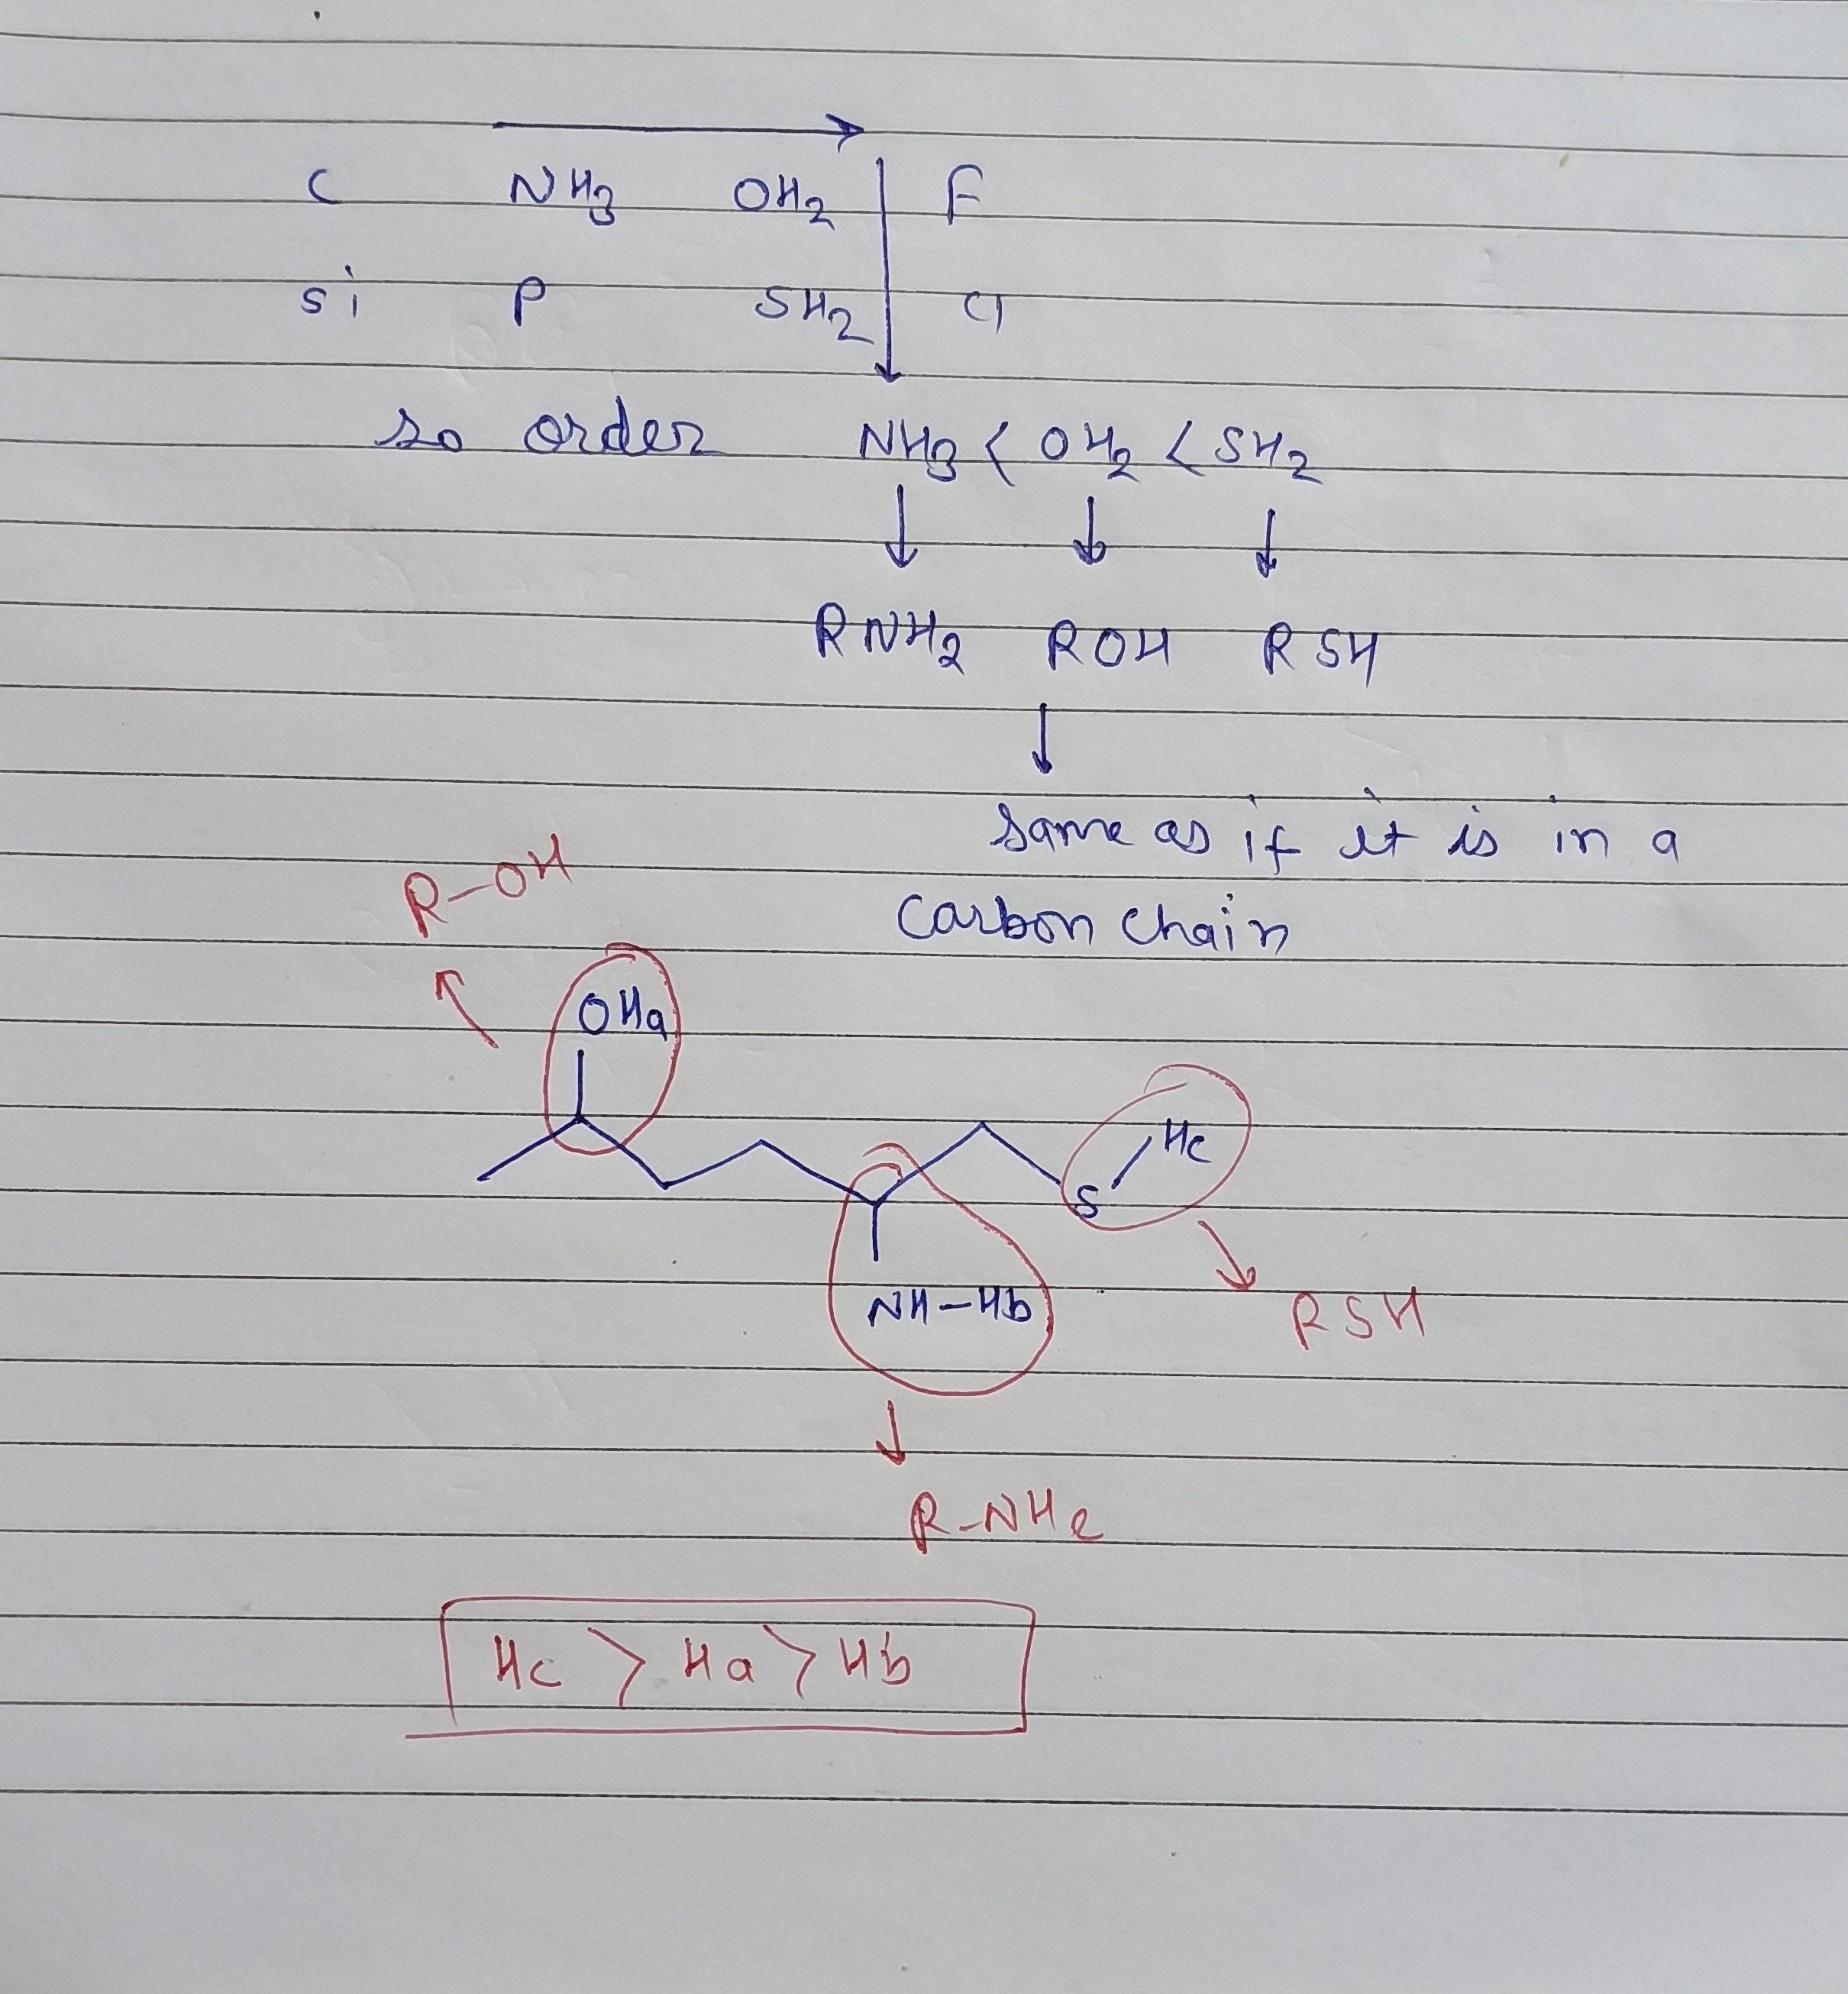 C NH3 OH2 F
Si P SH2 Cl
so order NH3 < OH2 < SH2
RNH2 ROH RSH
same as if it is in a
carbon chain
R-OH
OHa
Hc
S
NH-Hb
RSH
R-NH2
Hc > Ha > Hb